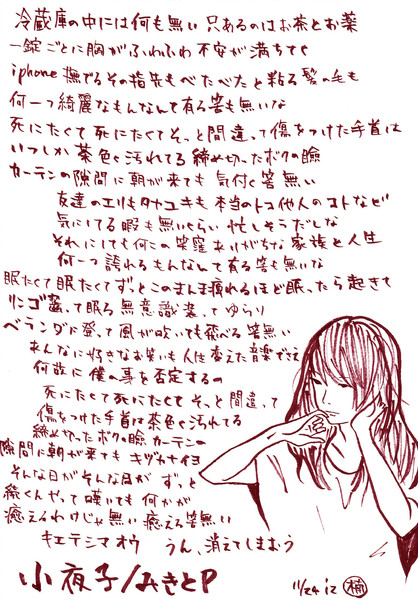 冷蔵庫の中には何も無い 只あるのはお茶とお薬
一錠ごとに胸がふわふわ 不安が満ちてく
iphone 撫でるその指先もべたべたと粘る髪の毛も
何一つ綺麗なもんなんて有る筈も無いな
死にたくて 死にたくて そっと間違って傷をつけた手首は
いつしか茶色く汚れてる 締め切ったボクの瞼
カーテンの隙間に朝が来ても 気付く筈無い
友達のエリもタナユキも 本当のトコ他人のコトなど
気にしてる暇も無いくらい 忙しそうだしな
それにしても何この窮窟 ありがちな 家族と人生
何一つ誇れるもんなんて有る筈も無いな
眠たくて 眠たくて ずっとこのまんま痺れるほど眠ったら起きて
リンゴ齧って眠る 無意識装ってゆらり
ベランダに登って風が吹いても飛べる筈無い
あんなに好きなお笑いも人生変えた音楽でさえ
何故に僕の事を否定するの
死にたくて死にたくて そっと間違って
傷をつけた手首は茶色く汚れてる
締め切ったボクの瞼 カーテンの
隙間に朝が来ても キヅカナイヨ
そんな日がそんな日が ずっと
続くんやって 嘆いても 何かが
癒えるわけじゃ無い 癒える筈無い
キエテシマオウ うん、消えてしまおう
小夜子/みきとP
11/24 '12 楠